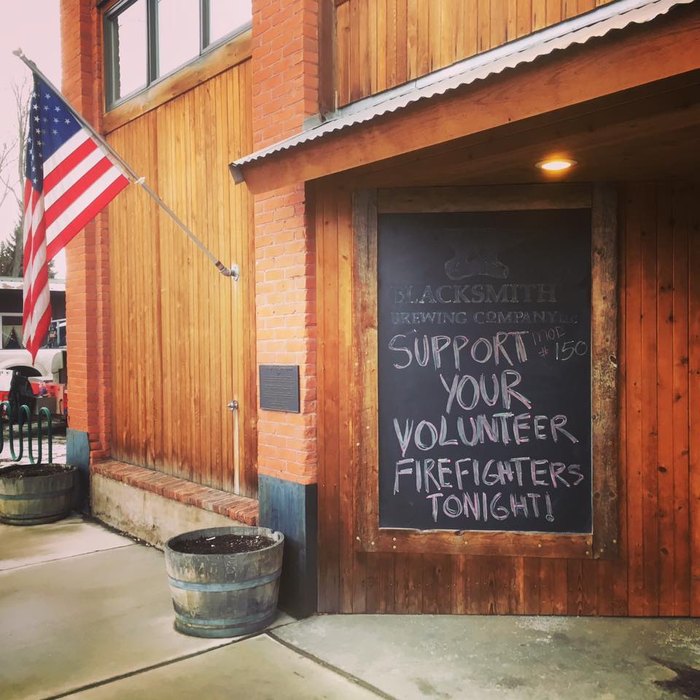 BLACKSMITH
BREWING COMPANY
SUPPORT
YOUR
VOLUNTEER
FIREFIGHTERS
TONIGHT!
# 150